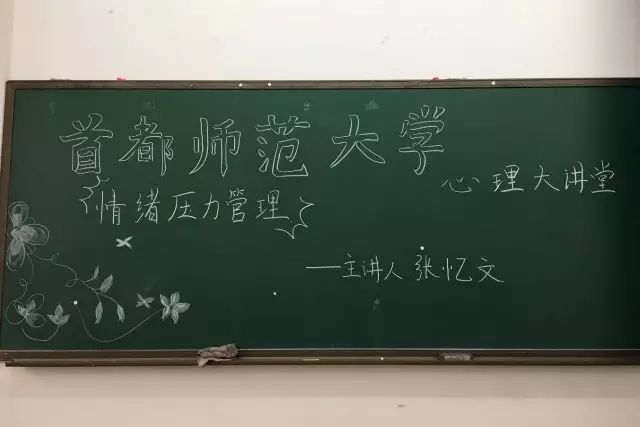 首都师范大学
心理大讲堂
情绪压力管理
—主讲人 张忆文